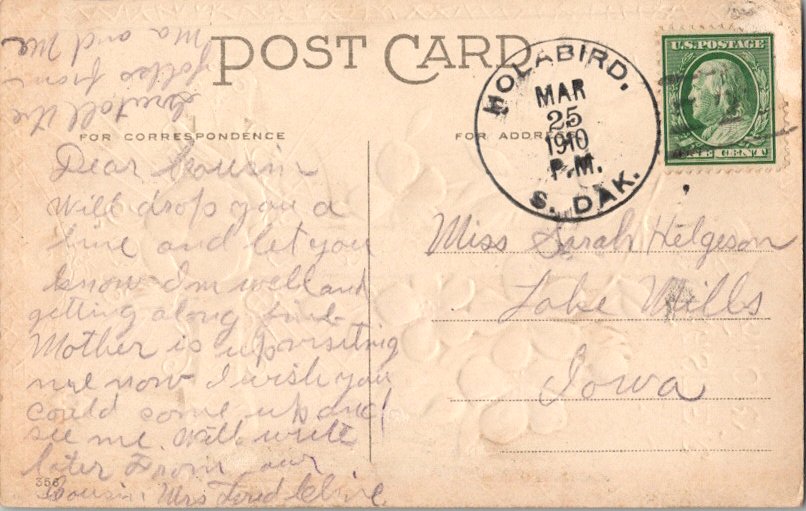 POST CARD
FOR CORRESPONDENCE
FOR ADDRESS
HOLABIRD,
MAR
25
1910
P.M.
S. DAK.
U.S. POSTAGE
ONE CENT
Dear Cousin
Will drop you a
line and let you
know I'm well and
getting along fine
Mother is up visiting
me now I wish you
could come up and
see me. Will write
later From your
Cousin, Mrs
356
tell the
folks from
Ma and Me
Miss Sarah Helgeson
Lake Mills
Iowa